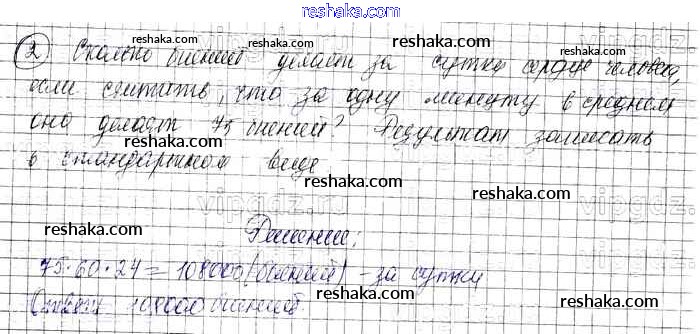 reshaka.com
② Сколько биений делает за сутки сердце человека,
если считать, что за одну минуту в среднем
оно делает 75 биений? Результат записать
в стандартном виде
Решение:
75·60·24=108000(биений) - за сутки
Ответ: 108000 биений.
reshaka.com
reshaka.com
reshaka.com
reshaka.com
reshaka.com
reshaka.com
reshaka.com
reshaka.com
reshaka.com
reshaka.com
reshaka.com
vipgdz.ru
vipgdz.ru